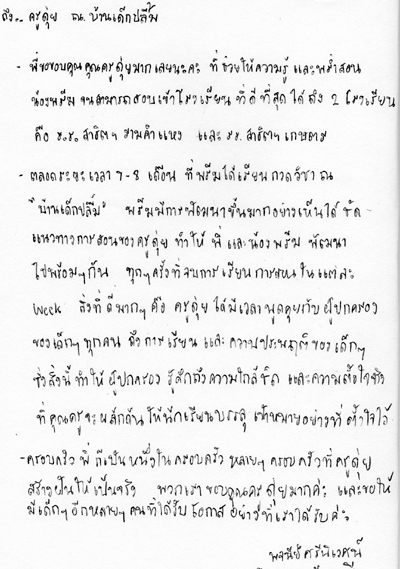 ถึง.. ครูตุ่ย ณ. บ้านเด็กปลื้ม
- พี่ขอขอบคุณคุณครูตุ่ยมากเลยนะคะ ที่ช่วยให้ความรู้ และพร่ำสอน
น้องพรีม จนสามารถสอบเข้าโรงเรียน ที่ดีที่สุด ได้ ถึง 2 โรงเรียน
คือ ร.ร. สาธิตฯ รามคำแหง และ รร. สาธิตฯ เกษตร
- ตลอดระยะเวลา 7-8 เดือน ที่พรีมได้เรียน กวดวิชา ณ
"บ้านเด็กปลื้ม" พรีมมีการพัฒนาขึ้นมากอย่างเห็นได้ ชัด
แนวทางการสอนของครูตุ่ย ทำให้ พี่ และน้อง พรีม พัฒนา
ไปพร้อมๆกัน ทุกๆครั้งที่จบการ เรียน การสอน ในแต่ละ
week สิ่งที่ดีมากๆ คือ ครูตุ่ย ได้มีเวลา พูดคุยกับ ผู้ปกครอง
ของเด็กๆ ทุกคน ถึง การเรียน และ ความประพฤติของ เด็กๆ
ซึ่งสิ่งนี้ ทำให้ ผู้ปกครอง รู้สึกถึงความใกล้ชิด และความตั้งใจจริง
ที่ คุณครูจะผลักดัน ให้นักเรียนบรรลุ เป้าหมายอย่างที่ ตั้งใจไว้
- ครอบครัว พี่ ก็เป็น หนึ่งใน ครอบครัว หลายๆ ครอบครัวที่ ครูตุ่ย
สร้างฝันให้ เป็นจริง พวกเรา ขอบคุณครู ตุ่ยมากค่ะ และขอให้
มีเด็กๆ อีกหลายๆ คนที่ได้รับ โอกาส อย่างที่เราได้รับค่ะ